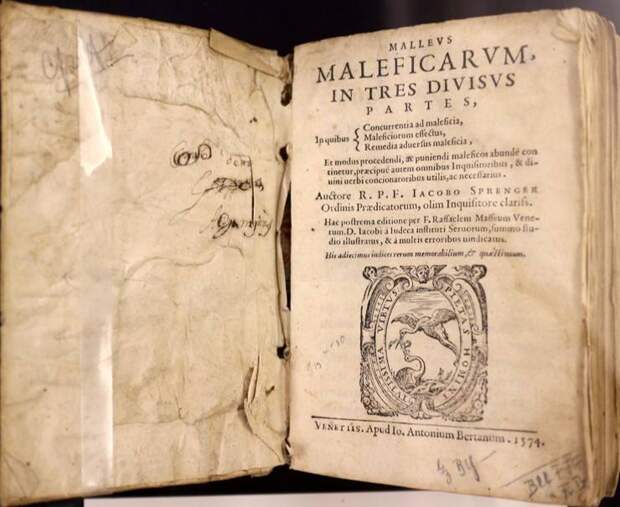 MALLEVS
MALEFICARVM,
IN TRES DIVISVS
PARTES,
In quibus
Concurrentia ad maleficia,
Maleficiorum effectus,
Remedia aduersus maleficia,
Et modus procedendi, & puniendi maleficos abundè con
tinetur, præcipuè autem omnibus Inquisitoribus, & di-
uini uerbi concionatoribus utilis, ac necessarius.
Auctore R. P. F. IACOBO SPRENGER
Ordinis Prædicatorum, olim Inquisitore clariss.
Hac postrema editione per F. Raffaelem Maffeum Vene-
tum. D. Iacobi à Iudeca instituti Seruorum, summo stu-
dio illustratus, & à multis erroribus uindicatus.
His adiecimus indices rerum memorabilium, & quæstionum.
VIRTVS
PIETAS HOMINI
TVTISSIMA
VENETIIS. Apud Io. Antonium Bertanum. 1574.